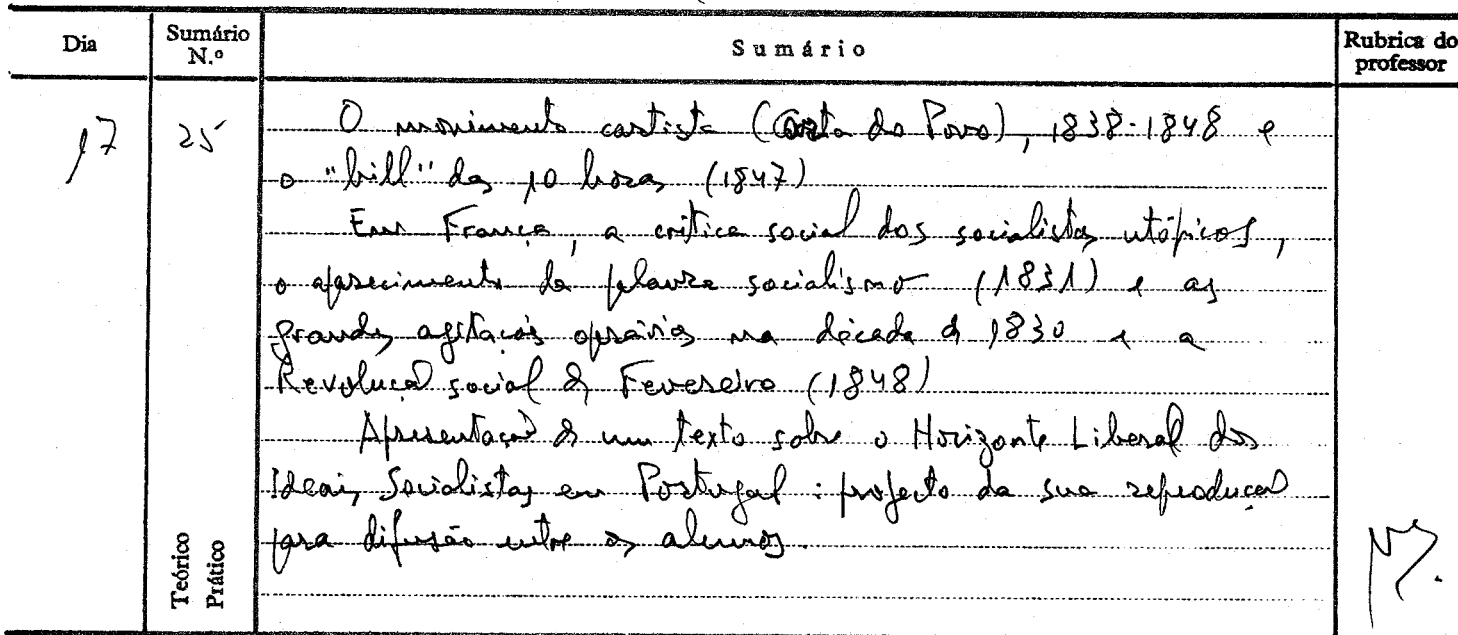 Dia
Sumário N.º
Sumário
Rubrica do professor
17
25
O movimento cartista (Carta do Povo), 1838-1848 e
o "bill" das 10 horas (1847)
Em França, a crítica social dos socialistas utópicos,
o aparecimento da palavra socialismo (1831) e as
grandes agitações operárias na década de 1830 e a
Revolução social de Fevereiro (1848)
Apresentação de um texto sobre o Horizonte Liberal dos
Ideais Socialistas em Portugal: projecto da sua reprodução
para difusão entre os alunos.
Teórico
Prático